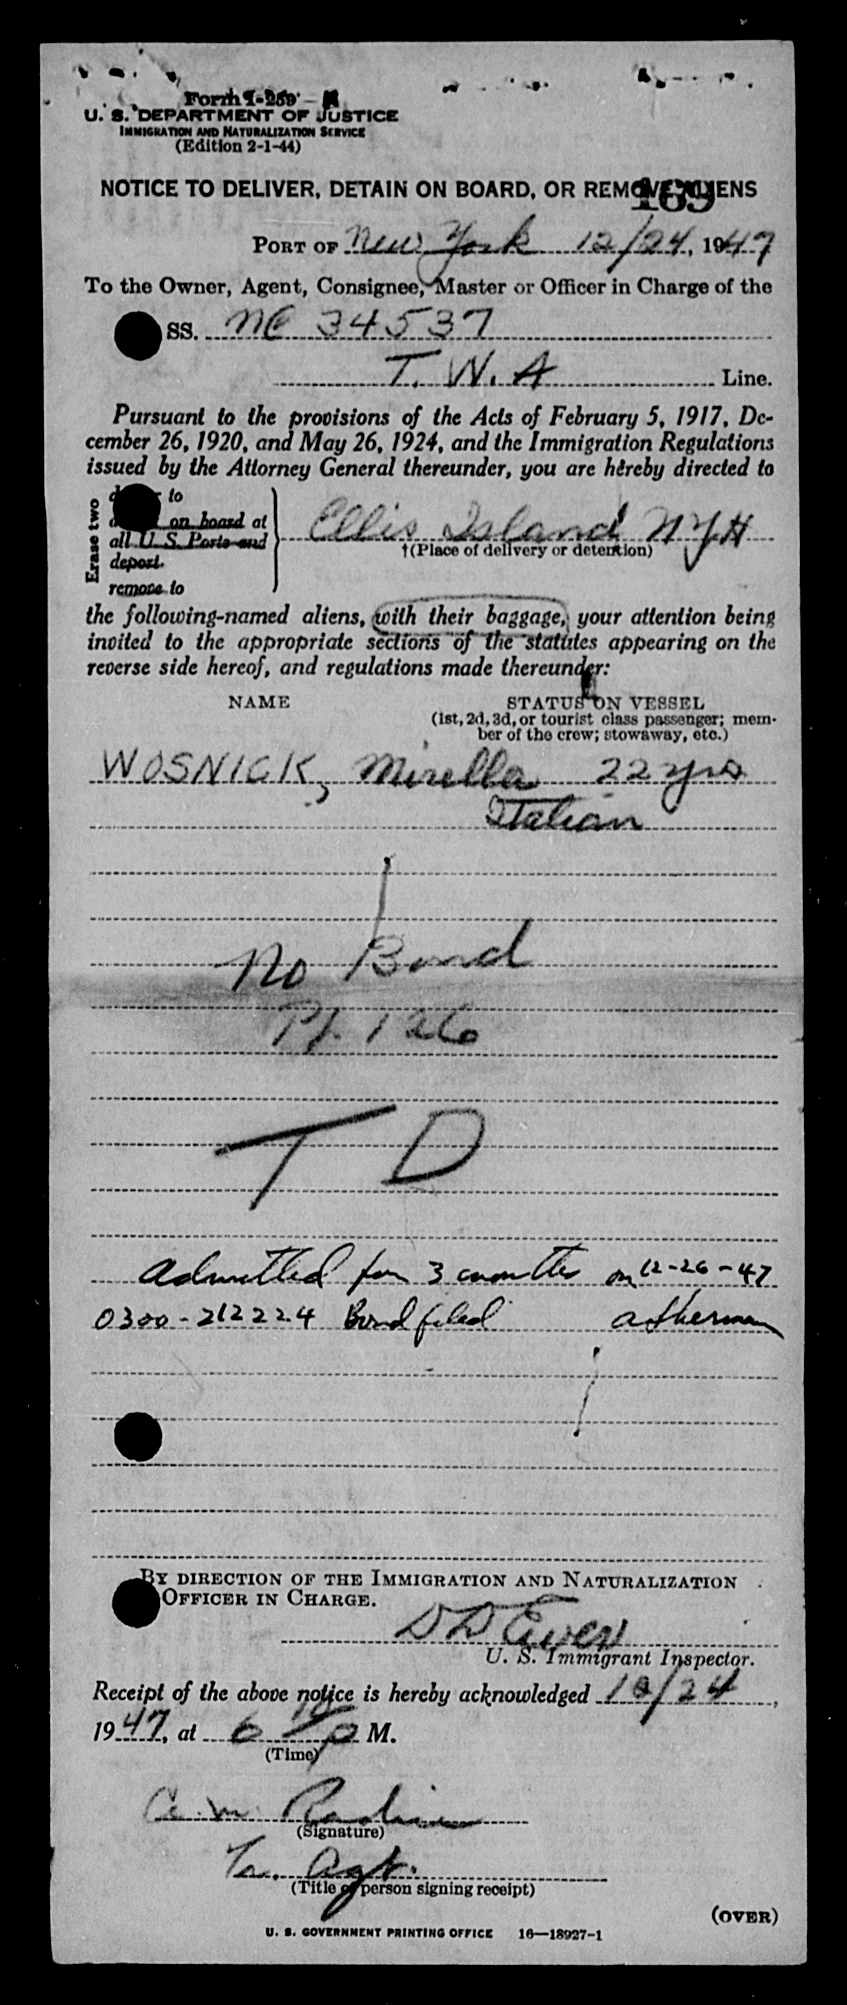 Form I-259
U. S. DEPARTMENT OF JUSTICE
IMMIGRATION AND NATURALIZATION SERVICE
(Edition 2-1-44)
NOTICE TO DELIVER, DETAIN ON BOARD, OR REMOVE ALIENS
169
PORT OF New York 12/24, 1947
To the Owner, Agent, Consignee, Master or Officer in Charge of the
SS. NC 34537
T. W. A Line.
Pursuant to the provisions of the Acts of February 5, 1917, De-
cember 26, 1920, and May 26, 1924, and the Immigration Regulations
issued by the Attorney General thereunder, you are hereby directed to
Erase two
to
on board at
all U. S. Ports and
deport.
remove to
Ellis Island NYH
†(Place of delivery or detention)
the following-named aliens, with their baggage, your attention being
invited to the appropriate sections of the statutes appearing on the
reverse side hereof, and regulations made thereunder:
NAME STATUS ON VESSEL
(1st, 2d, 3d, or tourist class passenger; mem-
ber of the crew; stowaway, etc.)
WOSNICK, Mirella 22 yrs
Italian
No Bond
126
T D
Admitted for 3 months on 12-26-47
0300-212224 Bond filed
BY DIRECTION OF THE IMMIGRATION AND NATURALIZATION
OFFICER IN CHARGE.
U. S. Immigrant Inspector.
Receipt of the above notice is hereby acknowledged 12/24,
1947, at 6 10 P M.
(Time)
(Signature)
Agt.
(Title of person signing receipt)
(OVER)
U. S. GOVERNMENT PRINTING OFFICE 16—18927-1